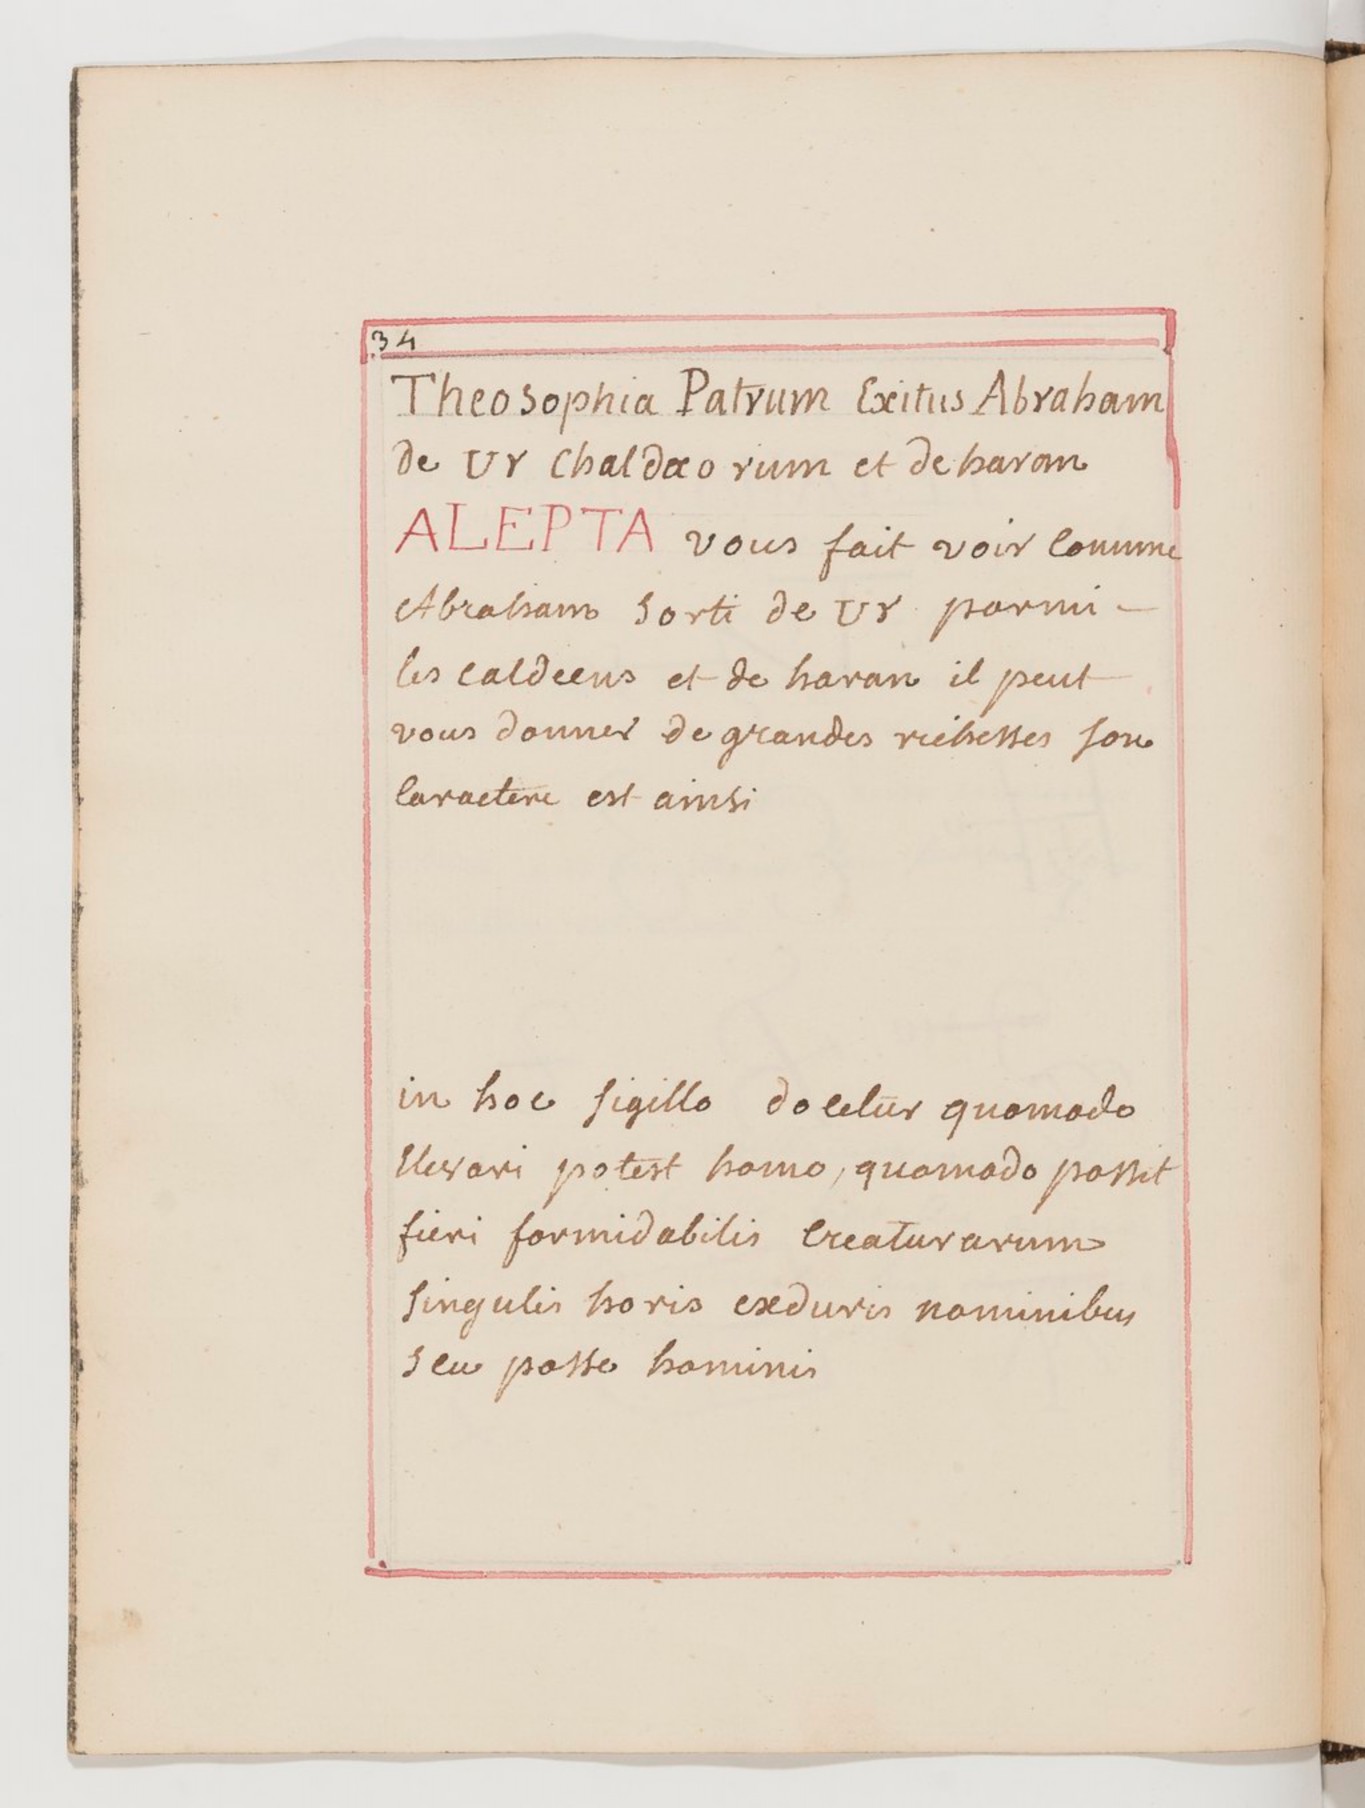 34
Theosophia Patrum Exitus Abraham
de Ur Chaldæorum et de haran
ALEPTA vous fait voir comme
Abraham sorti de Ur parmi –
les caldeens et de haran il peut
vous donner de grandes richesses son
caractere est ainsi
in hoc sigillo docetur quomodo
elevari potest homo, quomodo possit
fieri formidabilis creaturarum
singulis horis exduris nominibus
seu posse hominis